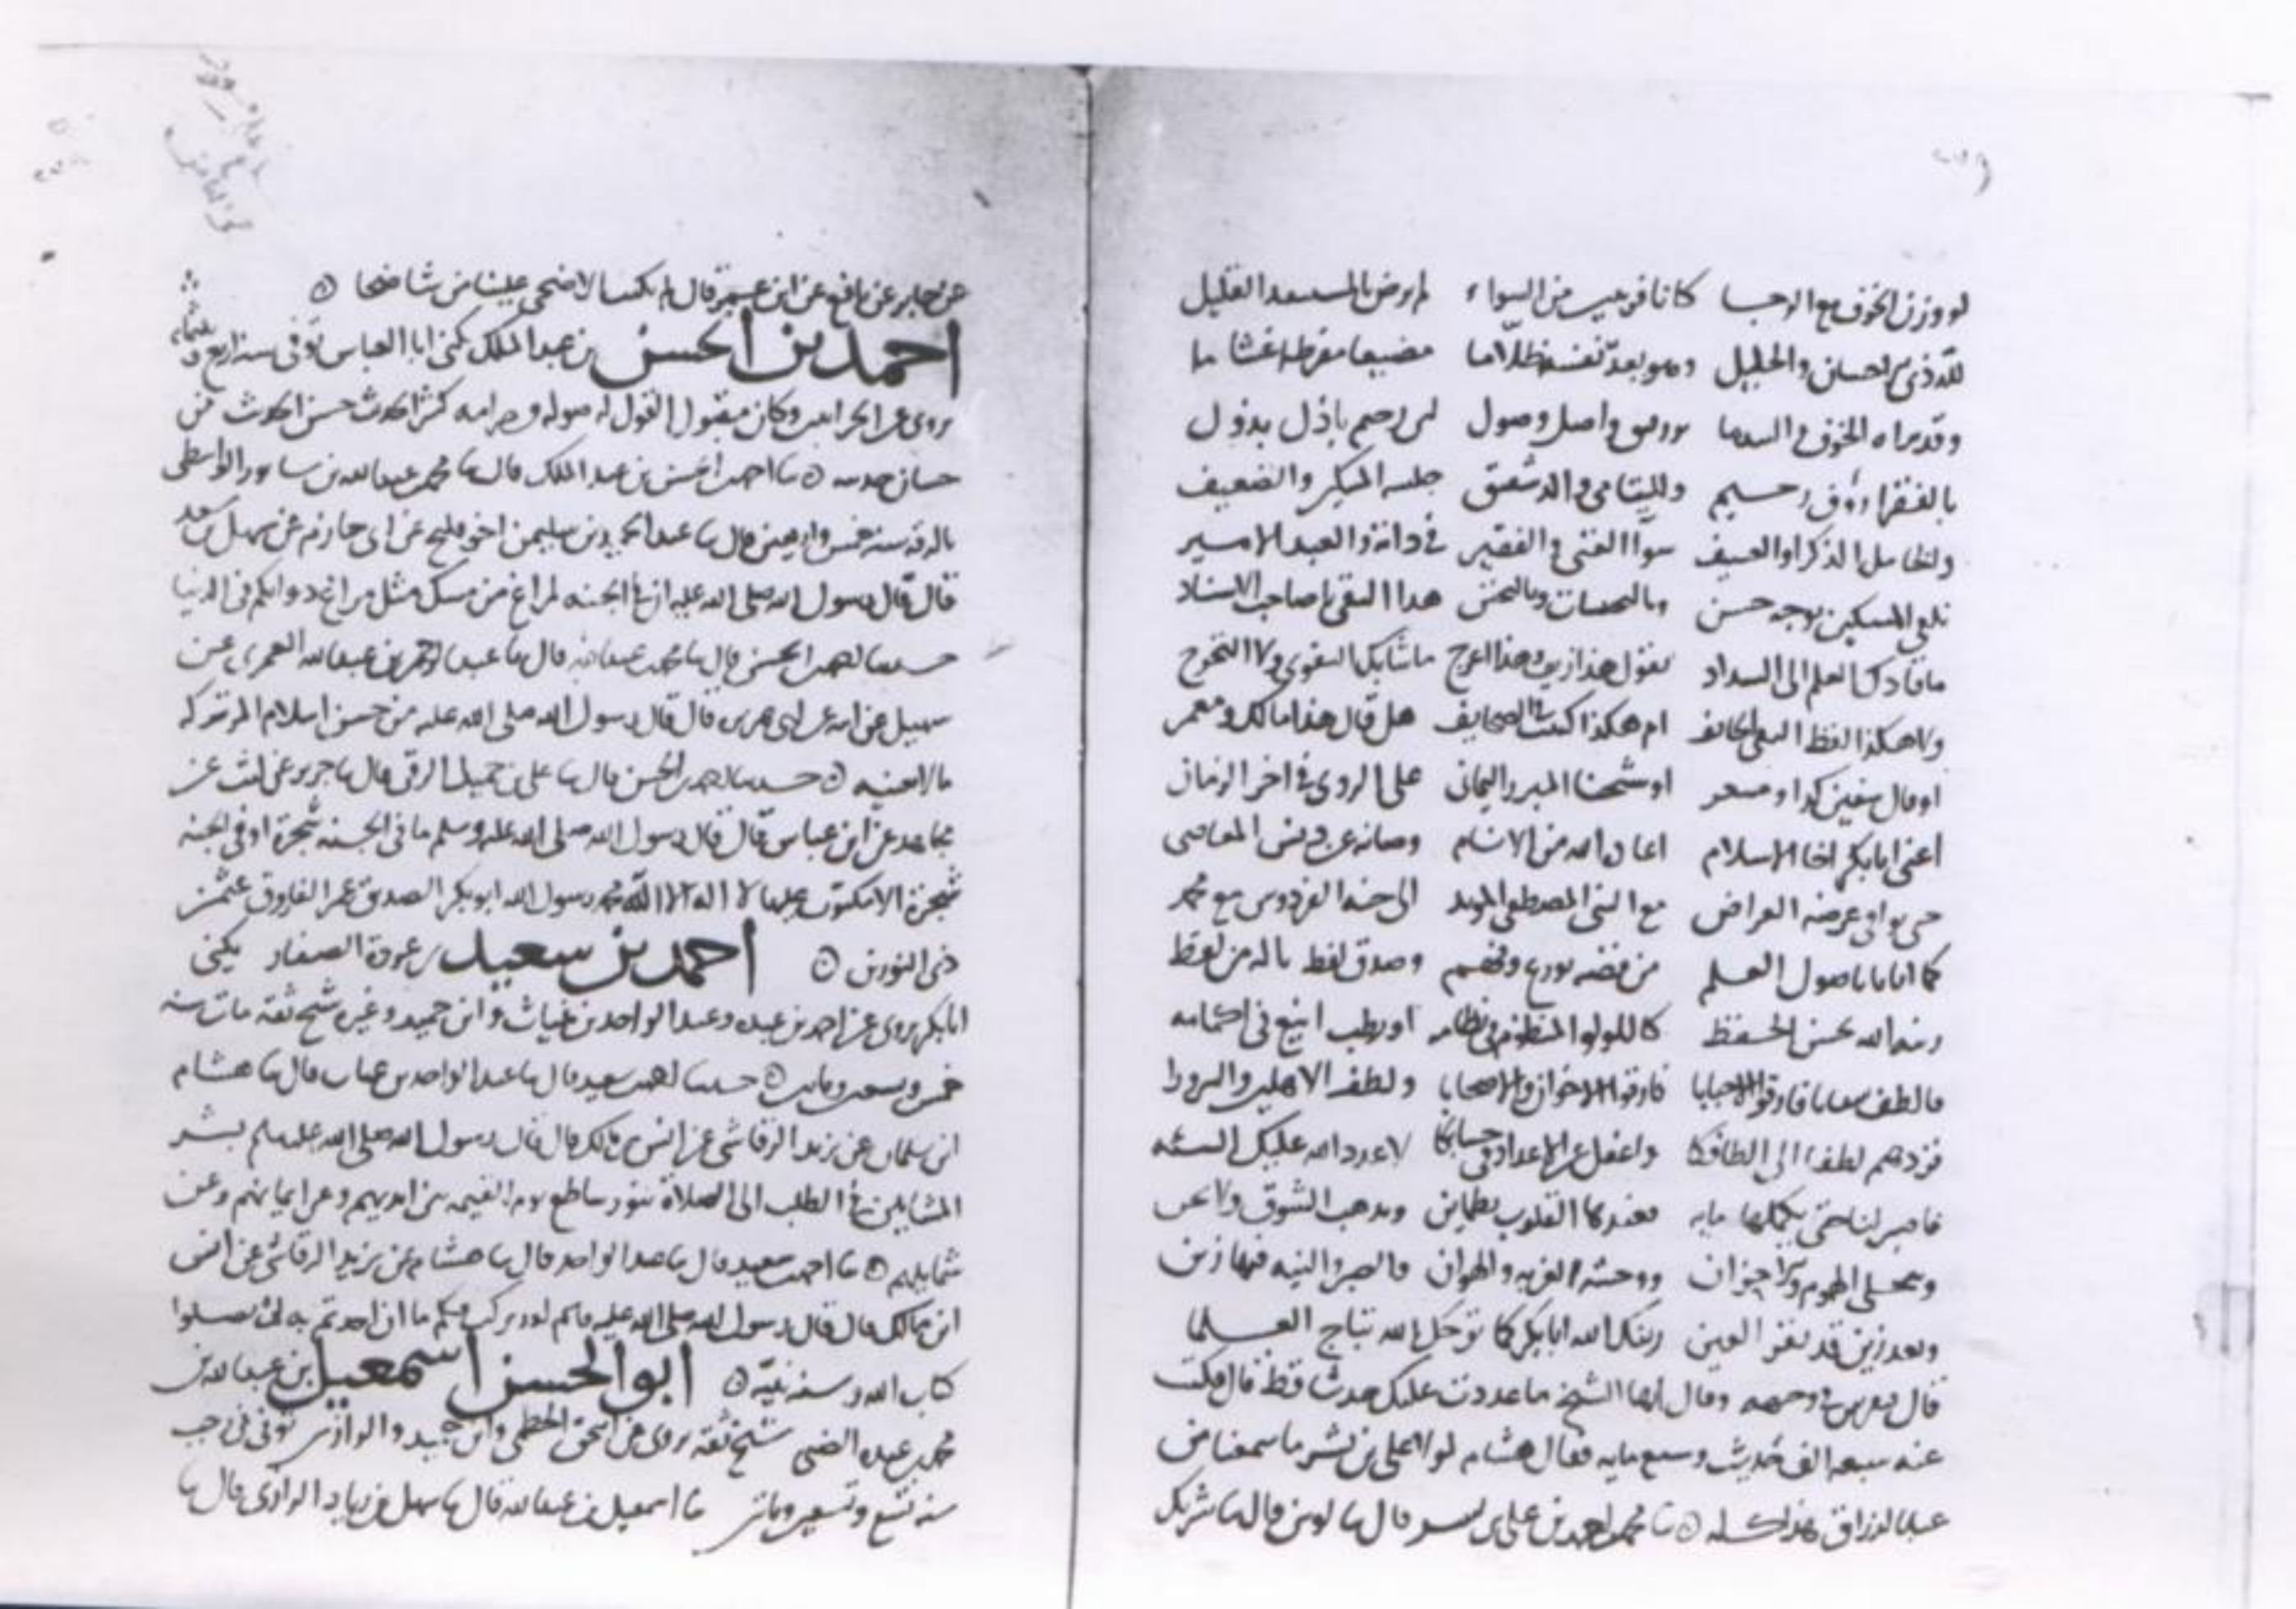 لو وزن الخوف مع الرجا كانا قريبين من السواء لم يرض بالمستبعد القليل
لله ذي الاحسان والجليل وهو يعد نفسه ظلاما مضيعا مفرطا غشاما
وقد يراه الخوف واصل وصول باذل بذول
بالفقراء رؤف رحيم ولليتامى والد شفيق والضعيف
سوآ الغني والفقير في ذاته والعبد الاسير
تلقى المسكين بوجه حسن هذا التقي يا صاحب الاسناد
ما قادك العلم الى السداد تقول هذا ازين وهذا اعرج ما شابك التقوى ولا التحرج
ولا هكذا لفظ التقي الخائف ام هكذا كتبت الصحايف هل قال هذا مالك ومعمر
او قال سفين كذا ومسعر او شيخنا المبرز اليماني على الروي في اخر الزمان
اعني ابا بكر اخا الاسلام اعاذه الله من الاثام وصانه عن دنس المعاصي
حتى يوافي عرصة العراض مع النبي المصطفى المويد الى جنة الفردوس مع محمد
كما اتانا باصول العلم من فضه بورع وفهم وصدق لفظ ياله من لفظ
زينه الله بحسن الحفظ كاللولو المنظوم في نظامه او رطب اينع في اكمامه
فالطف بنا يا فارقوا الاحبابا فارقوا الاخوان والاصحابا ولطف الاهلين والزوارا
فزدهم لطفا الى الطافكا واغفل عن الاعداد في حسابكا لا عدد الله عليك السيئه
فاصبر لنا حتى يكملها مايه فعندكا القلوب تطماين ويذهب الشوق ولا
وتنجلي الهموم والاحزان ووحشة الغربة والهوان فالصبر والنيه فيها زين
وبعد زين قد تقر العين زينك الله ابا بكر كما توجك الله بتاج العلما
قال في وجهه وقال ايها الشيخ ما عددت عليك حديثا قط قال فكتبت
عنه سبعة الف حديث وسبع مايه فقال هشام لولا علي بن بشر ما سمعنا من
عبد الرزاق هذا كله ه ثنا محمد بن احمد بن علي بن بشر قال ثنا لوين قال ثنا شريك
عن جابر عن نافع عن ابن عمر قال لم يكتب الاضحى علينا من شا ضحا ه
احمد بن الحسن بن عبد الملك يكنى ابا العباس توفي سنة اربع وثلثمايه
يروي عن وكان مقبول القول كثير الحديث حسن الحديث فمن
حسان حديثه ه ثنا احمد بن الحسن بن عبد الملك قال ثنا محمد بن عبد الله بن سابور الواسطي
بالرقه سنه خمس واربعين قال ثنا عبد الحميد بن سليمن اخو فليح عن ابي حازم عن سهل بن سعد
قال قال رسول الله صلى الله عليه ان في الجنه لمراغ من مسك مثل مراغ دوابكم في الدنيا
حدثنا احمد بن الحسن قال ثنا محمد بن عبد الله قال ثنا عبد الرحمن بن عبد الله العمري عن
سهيل عن ابيه عن ابي هريره قال قال رسول الله صلى الله عليه من حسن اسلام المر تركه
ما لا يعنيه ه حدثنا احمد بن الحسن قال ثنا علي بن جميل الرقي قال ثنا جرير عن ليث عن
مجاهد عن ابن عباس قال قال رسول الله صلى الله عليه وسلم ما في الجنه شجرة او في الجنه
شجرة الا مكتوب عليها لا اله الا الله محمد رسول الله ابو بكر الصديق عمر الفاروق عثمن
ذي النورين ه احمد بن سعيد بن عروة الصفار يكنى
ابا بكر يروي عن احمد بن عبده وعبد الواحد بن غياث وابن حميد وغيره شيخ ثقه مات سنه
خمس وتسعين ومايتين ه حدثنا احمد بن سعيد قال ثنا عبد الواحد بن غياث قال ثنا هشام
ابن سلمان عن يزيد الرقاشي عن انس بن مالك قال قال رسول الله صلى الله عليه وسلم بشر
المشايين في الظلم الى الصلاة بنور ساطع يوم القيمه من بين ايديهم وعن ايمانهم وعن
شمايلهم ه ثنا احمد بن سعيد قال ثنا عبد الواحد قال ثنا هشام عن يزيد الرقاشي عن انس
ابن مالك قال قال رسول الله صلى الله عليه وسلم لقد تركت فيكم ما ان اخذتم به لن تضلوا
كتاب الله وسنه نبيه ه ابو الحسن اسمعيل بن عبد الله بن
محمد بن عبده الضبي شيخ ثقه يروي عن اسحق الخطمي وابن حميد والرازي توفي في رجب
سنه تسع وتسعين ومايتين ثنا اسمعيل بن عبد الله قال ثنا سهل بن زياد الرازي قال ثنا